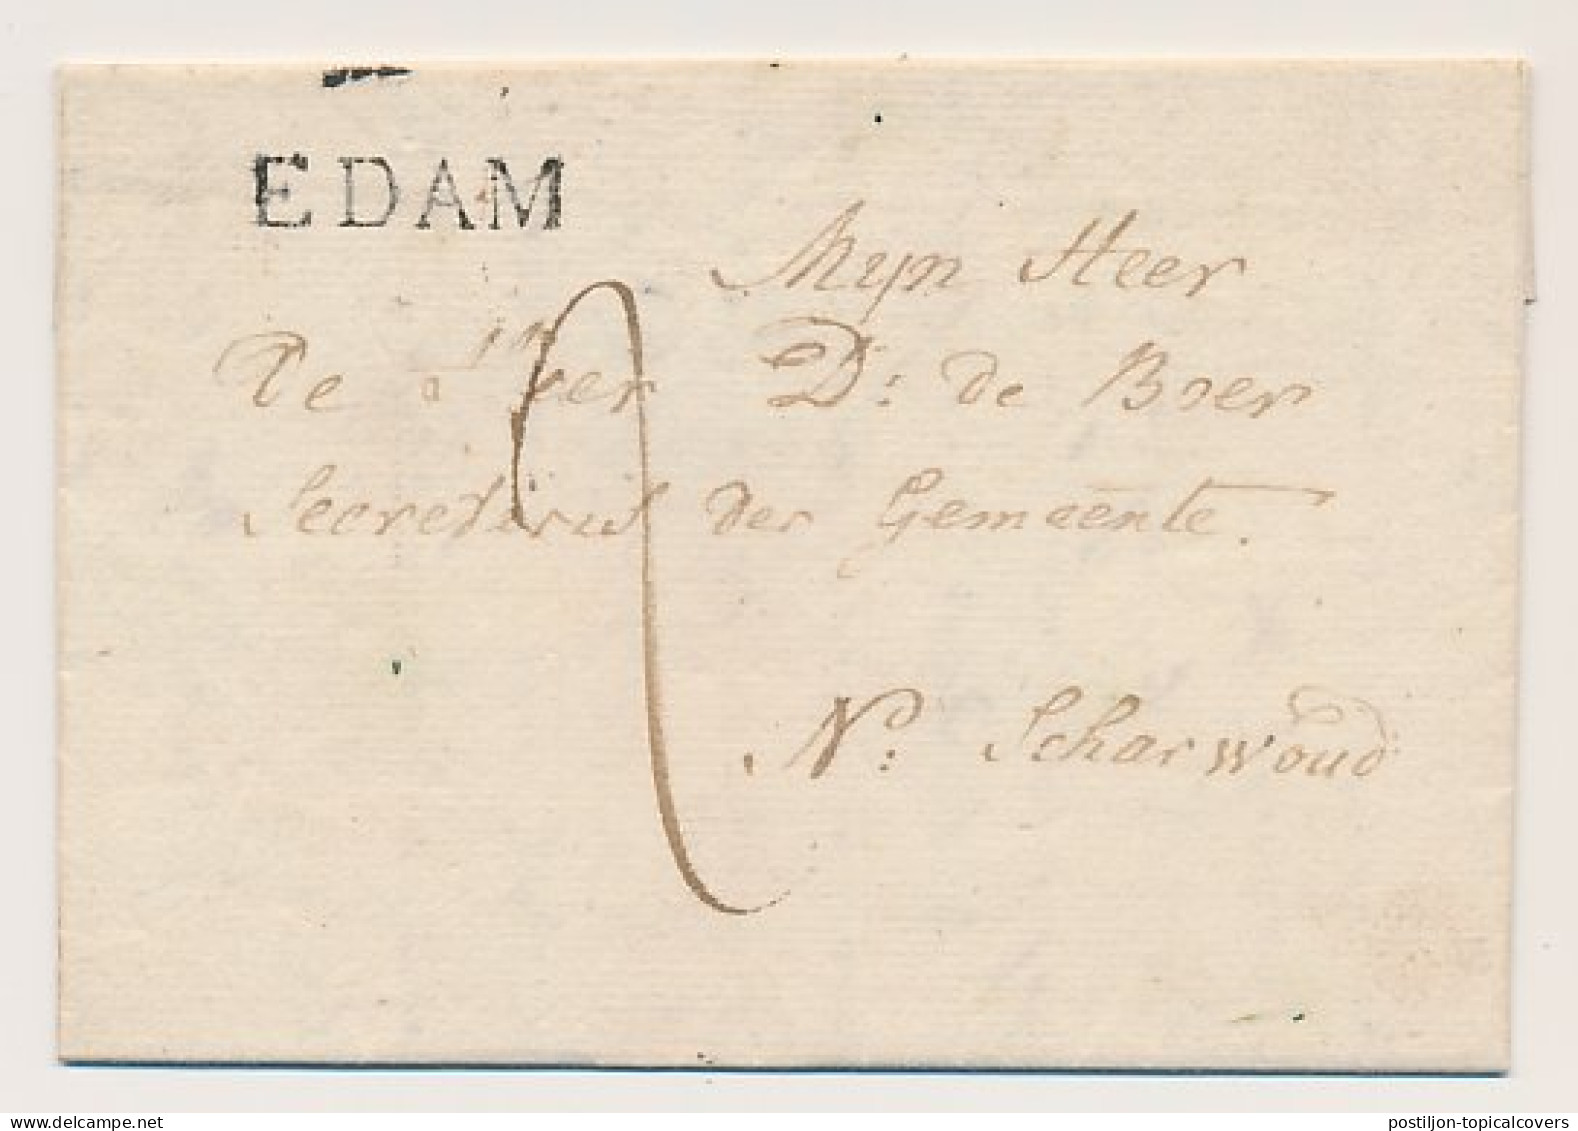 EDAM
Mijn Heer
De Heer D: de Boer
Secretaris der Gemeente.
N: Scharwoud
postiljon-topicalcovers